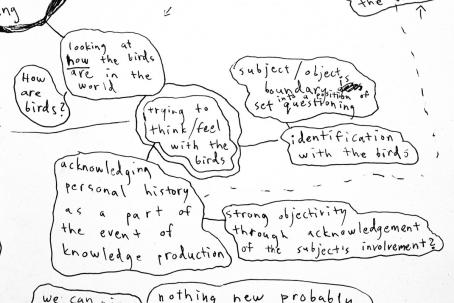 ng
the
looking at
how the birds
are in the
world
How
are
birds?
subject/object
boundary is
into a position of
set questioning
trying to
think/feel
with the
birds
identification
with the birds
acknowledging
personal history
as a part of
the event of
knowledge production
strong objectivity
through acknowledgement
of the subject's involvement?
we can
nothing new probably